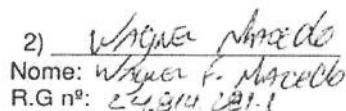 2) Wagner Macedo
Nome: Wagner F. Macedo
R.G nº: